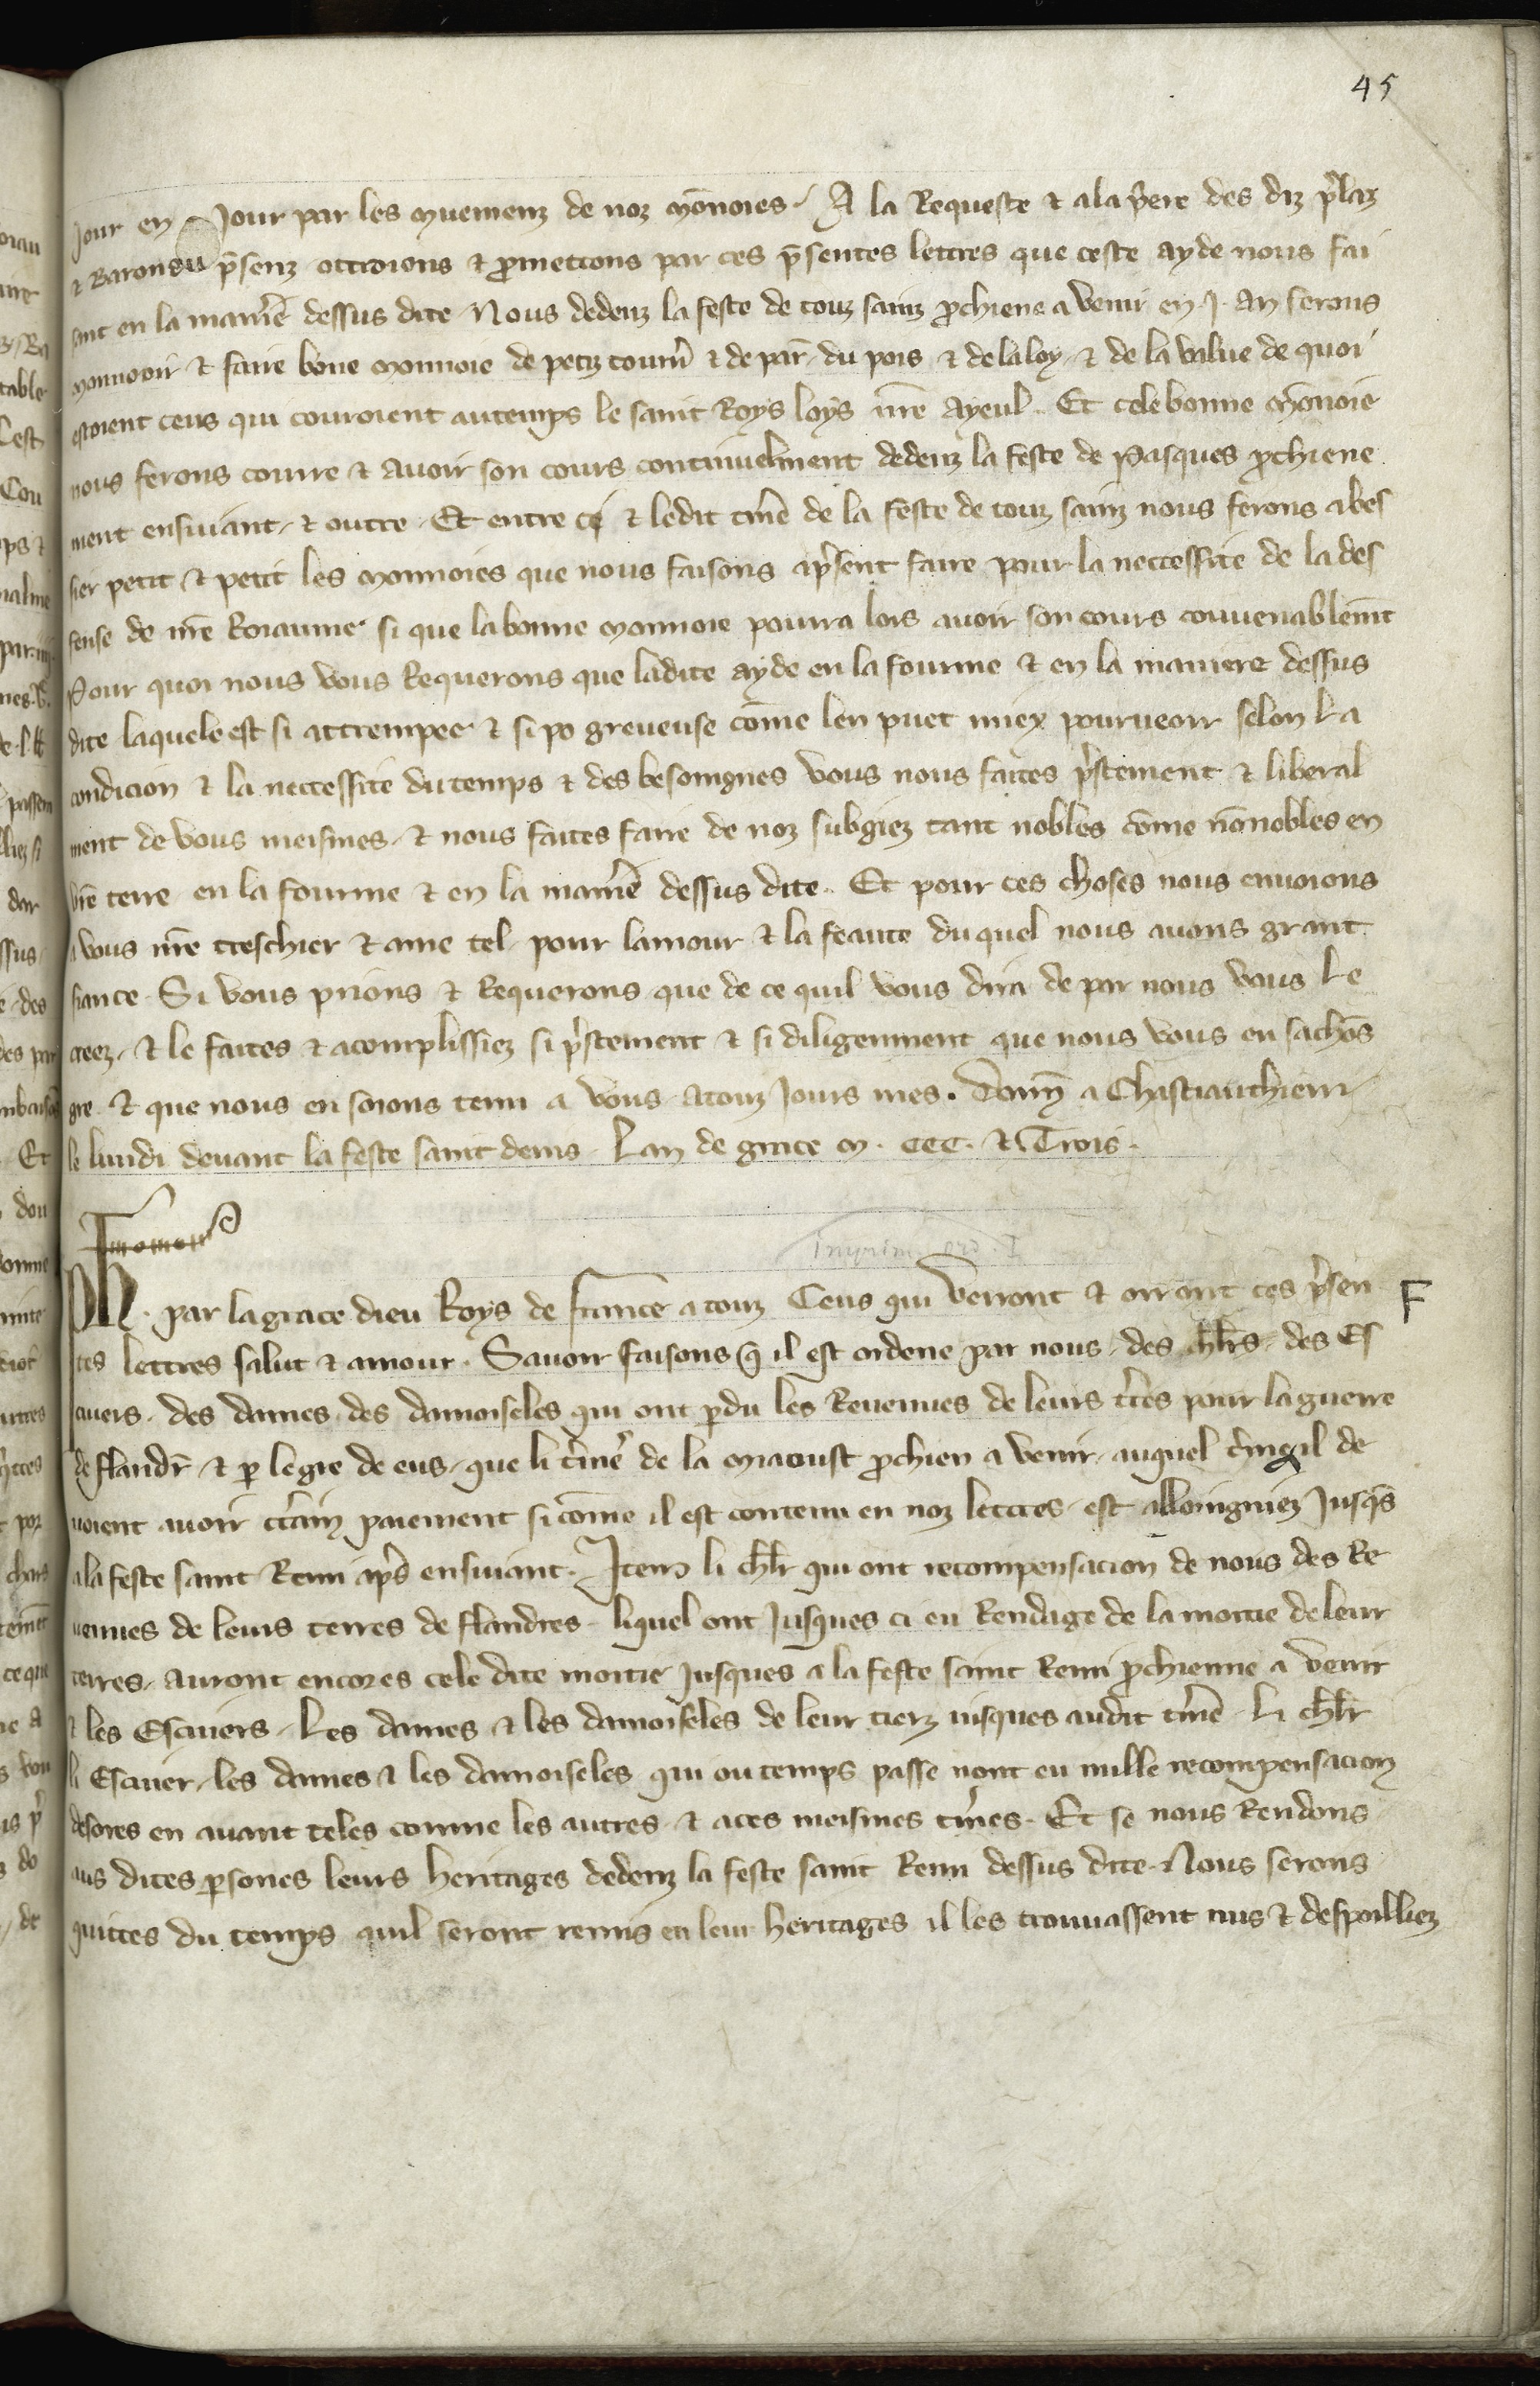 45
Jour en Jour par les muemenz de noz mōnoies. A la Requeste & ala p̄iere des diz p̄laz
& Barons p̄senz ottroions & ꝓmettons par ces p̄sentes lettres que ceste ayde nous fai
sant en la manie᷑e dessus dite Nous dedenz la feste de touz sainz ꝓchiene a venir en .J. an serons
monnoier & faire bone monnoie de petiz tourn̄ & de par̄. du pois & de la loy. & de la value de quoi
estoient ceus qui couroient autemps le saint Roys loys nr̄e Ayeul. Et cele bonne mōnoie
nous ferons courre & avoir son cours continuelment dedenz la feste de Pasques ꝓchiene
ment ensuiant. & outre. Et entre ci & ledit tm̄e de la feste de touz sainz nous ferons abes
sier petit & petit les monnoies que nous faisons ap̄sent faire pour la neccessite de la def
fense de nr̄e Roiaume si que la bonne monnoie pourra lors avoir son cours convenablemt̄
Pour quoi nous vous Requerons que ladite ayde en la fourme & en la maniere dessus
dite laquele est si attrempee & si po greveuse cōme len puet miex pourveoir selon la
condicion & la neccessite du temps & des besoingnes vous nous faites p̄stement & liberal
ment de vous meismes. & nous faites faire de noz subgiez tant nobles cōme nōnobles en
vr̄e terre en la fourme & en la manie᷑e dessus dite. Et pour ces choses nous envoions
a vous nr̄e treschier & ame tel. pour lamour & la feaute du quel nous avons grant
fiance. Si vous prions & Requerons que de ce quil vous dira de par nous vous le
creez. & le faites & acomplissiez si p̄stement & si diligenment que nous vous en sachōs
gre. & que nous en soions tenu a vous atouz Jours mes. Donn̄ a Chastiauthierri
le lundi devant la feste saint denis. Lan de grace m. ccc. & Trois.
Imprim. ord. I
Ph. par la grace dieu Roys de france a touz Ceus qui verront & orront ces p̄sen
F
tes lettres salut & amour. Savoir faisons q̄ il est ordene par nous. des chl̄rs. des Es
cuiers. des dames. des damoiseles qui ont ꝑdu les Revenues de leurs t̄res pour la guerre
de flandr̄ & ꝑ le gre de eus. que li t̄mē de la miaoust ꝓchien a venir. auquel t̄me il de
voient avoir c̄tain paiement si cōme il est contenu en noz lettres. est alloingniez Jusq̄s
a la feste saint Remi ap̄s ensuiant. Item li chl̄r qui ont recompensacion de nous des Re
venues de leurs terres de flandres. liquel ont Jusques ci eu Rendage de la moitie de leur
terres. auront encores cele dite moitie Jusques a la feste saint Remi ꝓchienne a venir
& les Escuiers. Les dames & les damoiseles de leur tierz iusques audit tm̄e. Li chl̄r
li Escuier. les dames & les damoiseles qui ou temps passe nont eu nulle recompensacion
desores en avant teles comme les autres. & a ces meismes tm̄es. Et se nous Rendons
aus dites ꝑsones leurs heritages dedenz la feste saint Remi dessus dite. Nous serons
quittes du temps quil seront remis en leur heritages il les trouvassent nus & despoilliez